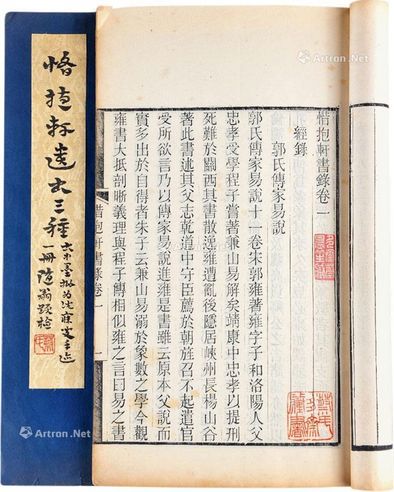 惜抱軒書錄卷一
經錄
郭氏傳家易說
郭氏傳家易說十一卷宋郭雍著雍字子和洛陽人父
忠孝受學程子嘗著兼山易解矣靖康中忠孝以提刑
死難於關西其書散漶雍遭亂後隱居峽州長楊山谷
著此書述其父志乾道中守臣薦於朝旌召不起遣官
受所欲言乃以傳家易說進雍是書雖云本父說而
實多出於自得者朱子云兼山易溺於象數之學今觀
雍書大抵剖晰義理與程子傳相似雍之言曰易之書
惜抱軒書錄卷一
一
惜抱軒遺書三種
一冊
Artron.Net
Artron.Net